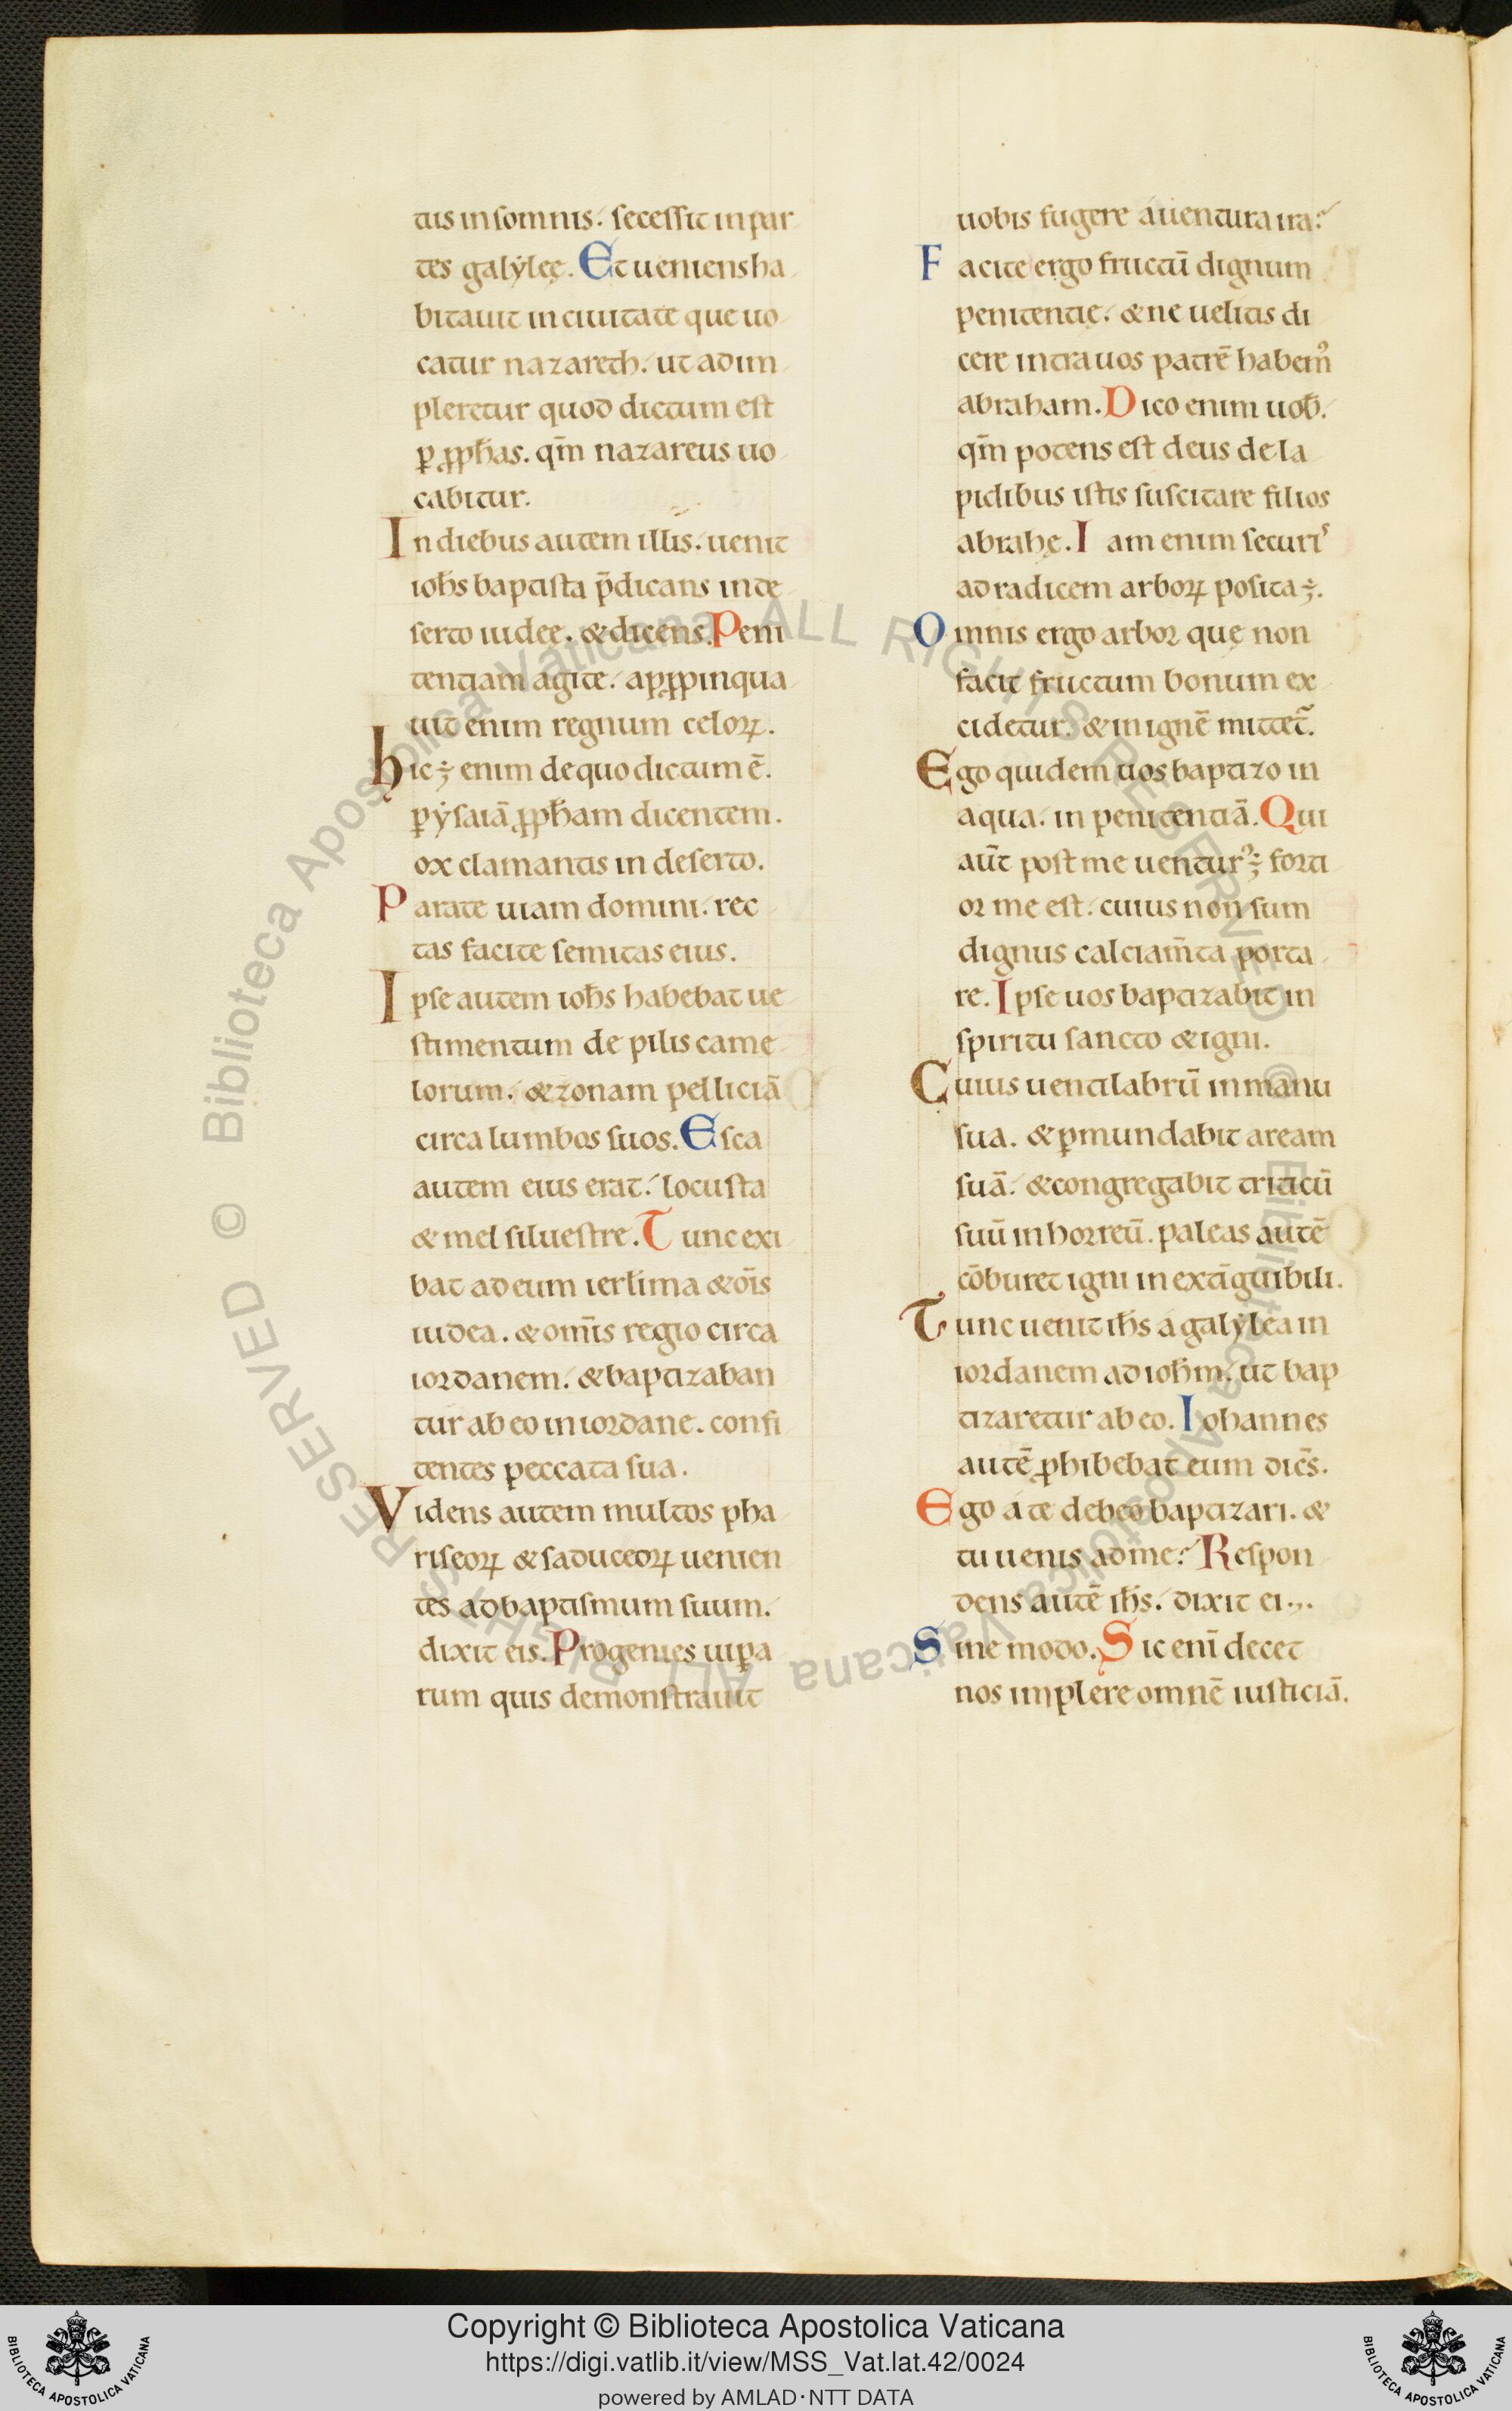 tus in somnis. secessit in par
tes galẏleę. Et ueniens ha
bitauit in ciuitate que uo
catur nazareth. ut adim
pleretur quod dictum est
ꝑ ꝓph̄as. qm̄ nazareus uo
cabitur.
In diebus autem illis. uenit
ioh̄s baptista p̄dicans in de
serto iudeę. & dicens. Peni
tentiam agite. apꝓpinqua
uit enim regnum celoꝝ.
hic ÷ enim de quo dictum ē.
ꝑ ẏsaiā ꝓph̄am dicentem.
ox clamantis in deserto.
Parate uiam domini. rec
tas facite semitas eius.
Ipse autem ioh̄s habebat ue
stimentum de pilis came
lorum. & zonam pelliciā
circa lumbos suos. Esca
autem eius erat. locusta
& mel siluestre. Tunc exi
bat ad eum ierl̄ima & oīs
iudea. & om̄is regio circa
iordanem. & baptizaban
tur ab eo in iordane. confi
tentes peccata sua.
Videns autem multos pha
riseoꝝ & saduceoꝝ uenien
tes ad baptismum suum.
dixit eis. Progenies uiꝑa
rum quis demonstrauit
uobis fugere á uentura ira?
Facite ergo fructū dignum
penitentię. & ne uelitis di
cere intra uos patrē habem᾽
abraham. Dico enim uob̄.
qm̄ potens est deus de la
pidibus istis suscitare filios
abrahę. Iam enim securiˢ
ad radicem arboꝝ posita ÷.
Omnis ergo arbor quę non
facit fructum bonum ex
cidetur. & in ignē mittet᷑.
Ego quidem uos baptizo in
aqua. in penitentiā. Qui
aūt post me uentur᾽ ÷ forti
or me est. cuius non sum
dignus calciam̄ta porta
re. Ipse uos baptizabit in
spiritu sancto & igni.
Cuius uentilabrū in manu
sua. & ꝑmundabit aream
suā. & congregabit triticū
suū in horreū. paleas autē
cōburet igni inextīguibili.
Tunc uenit ih̄s á galẏlea in
iordanem ad ioh̄m. ut bap
tizaretur ab eo. Iohannes
autē ꝓhibebat eum dicēs.
Ego á te debeo baptizari. &
tu uenis ad me? Respon
dens autē ih̄s. dixit ei.,.
Sine modo. Sic enī decet
nos implere omnē iusticiā.
Copyright © Biblioteca Apostolica Vaticana
https://digi.vatlib.it/view/MSS_Vat.lat.42/0024
powered by AMLAD·NTT DATA
BIBLIOTECA APOSTOLICA VATICANA
BIBLIOTECA APOSTOLICA VATICANA
© Biblioteca Apostolica Vaticana ALL RIGHTS RESERVED © Biblioteca Apostolica Vaticana ALL RIGHTS RESERVED